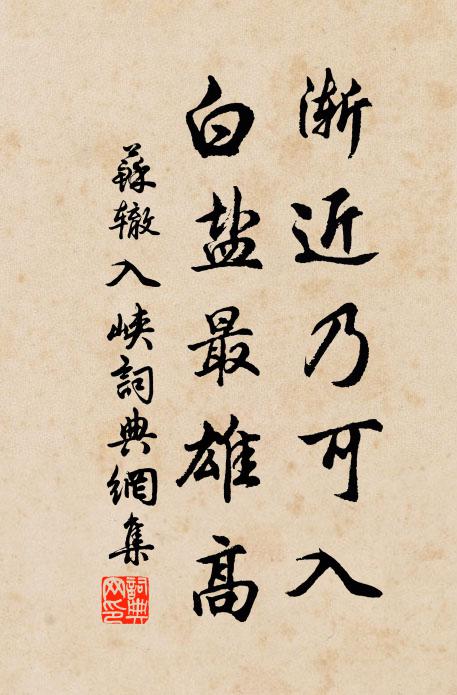 渐近乃可入
白盐最雄高
蘇辙入峡詞典網集
詞典網印